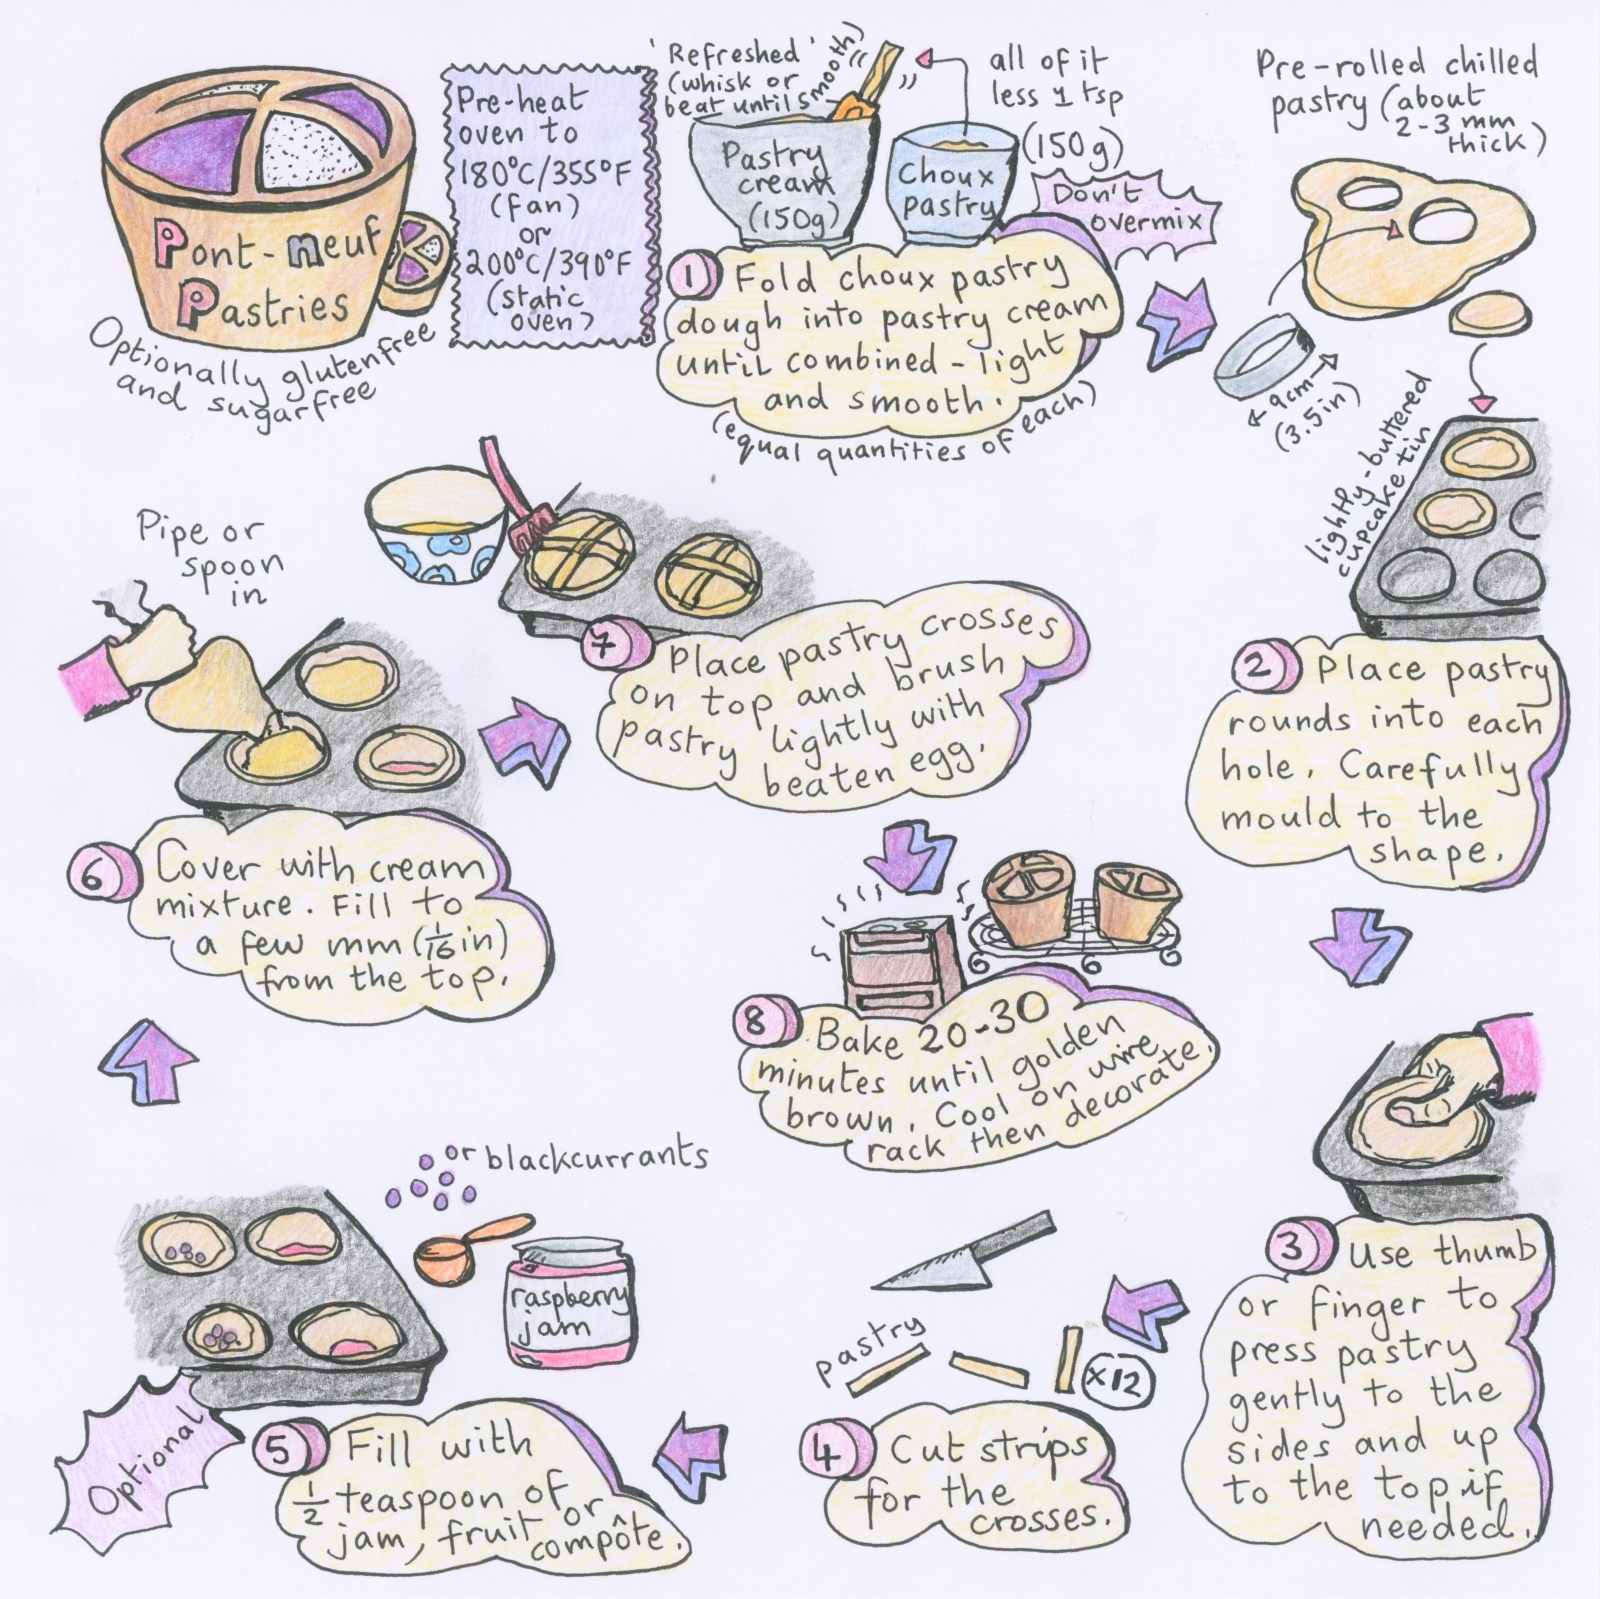 Pont-neuf
Pastries
Optionally glutenfree
and sugarfree
Pre-heat
oven to
180°C/355°F
(fan)
or
200°C/390°F
(static
oven)
'Refreshed'
(whisk or
beat until smooth)
Pastry
cream
(150g)
Choux
pastry
all of it
less 1 tsp
(150g)
Don't
overmix
1 Fold choux pastry
dough into pastry cream
until combined - light
and smooth.
(equal quantities of each)
Pre-rolled chilled
pastry (about
2-3 mm
thick)
9cm
(3.5in)
lightly-buttered
cupcake tin
2 Place pastry
rounds into each
hole. Carefully
mould to the
shape.
3 Use thumb
or finger to
press pastry
gently to the
sides and up
to the top if
needed.
pastry
x12
4 Cut strips
for the
crosses.
or blackcurrants
raspberry
jam
Optional
5 Fill with
1/2 teaspoon of
jam, fruit or
compôte.
Pipe or
spoon
in
6 Cover with cream
mixture. Fill to
a few mm (1/16 in)
from the top.
7 Place pastry crosses
on top and brush
pastry lightly with
beaten egg.
8 Bake 20-30
minutes until golden
brown. Cool on wire
rack then decorate.